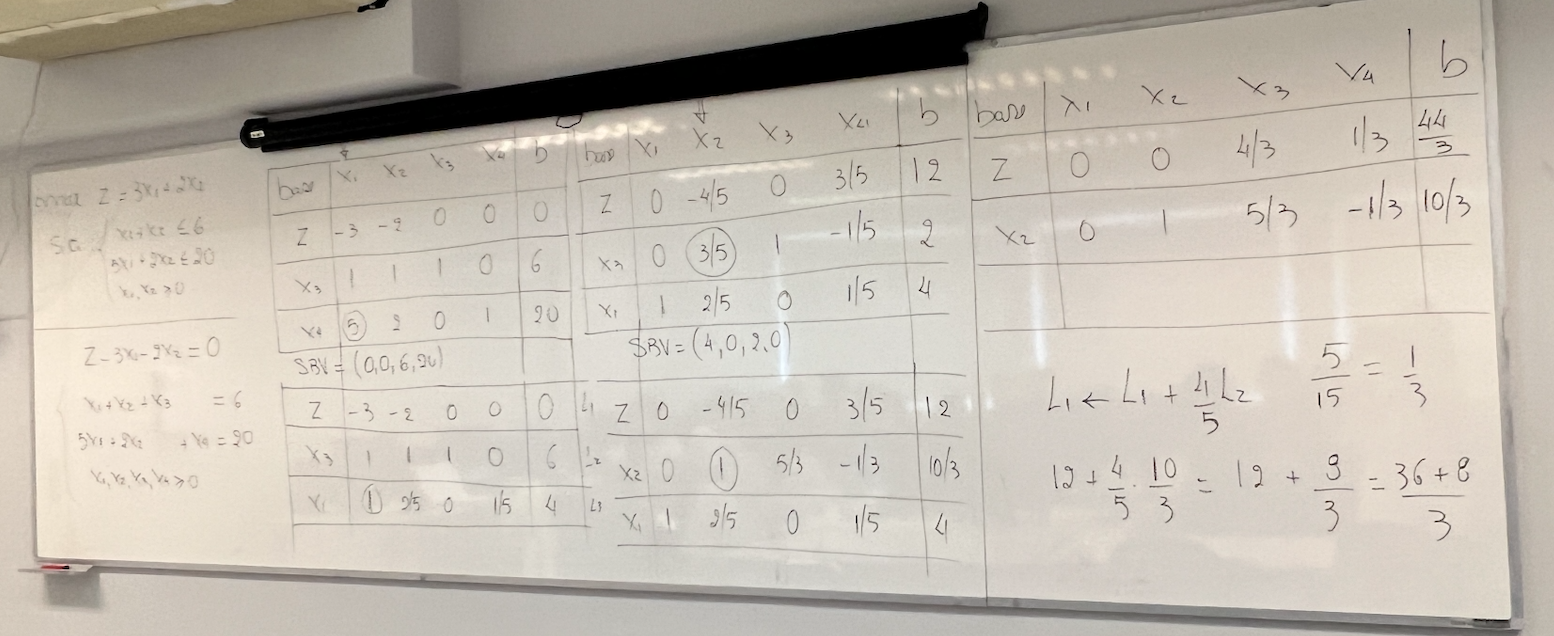 Z = 3x₁ + 2x₂
S.a x₁ + x₂ ≤ 6
5x₁ + 2x₂ ≤ 20
x₁, x₂ ≥ 0
Z - 3x₁ - 2x₂ = 0
x₁ + x₂ + x₃ = 6
5x₁ + 2x₂ + x₄ = 20
x₁, x₂, x₃, x₄ ≥ 0
base x₁ x₂ x₃ x₄ b
Z -3 -2 0 0 0
x₃ 1 1 1 0 6
x₄ 5 2 0 1 20
SBV = (0,0,6,20)
Z -3 -2 0 0 0 L₁
x₃ 1 1 1 0 6 L₂
x₁ 1 2/5 0 1/5 4 L₃
base x₁ x₂ x₃ x₄ b
Z 0 -4/5 0 3/5 12
x₃ 0 3/5 1 -1/5 2
x₁ 1 2/5 0 1/5 4
SBV = (4,0,2,0)
Z 0 -4/5 0 3/5 12
x₂ 0 1 5/3 -1/3 10/3
x₁ 1 2/5 0 1/5 4
base x₁ x₂ x₃ x₄ b
Z 0 0 4/3 1/3 44/3
x₂ 0 1 5/3 -1/3 10/3
L₁ ← L₁ + 4/5 L₂ 5/15 = 1/3
12 + 4/5 · 10/3 = 12 + 8/3 = (36+8)/3